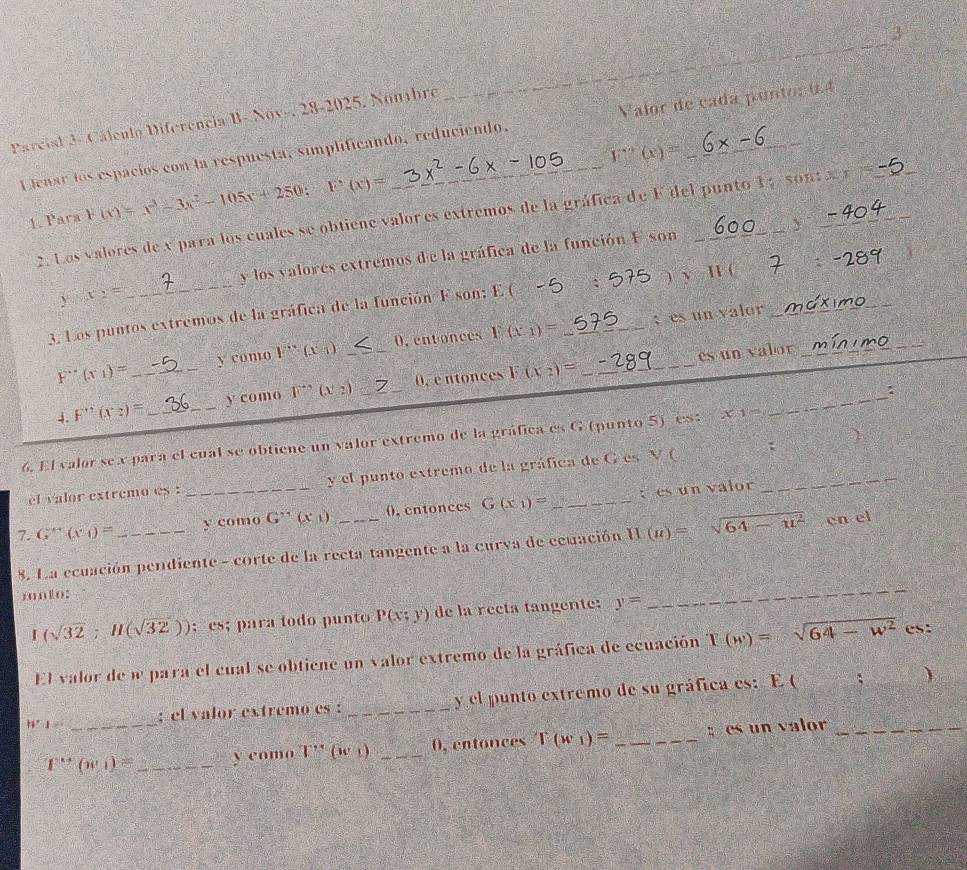 3
Parcial 3- Cálculo Diferencia B- Nov-. 28-2025. Nombre ____________
Llenar los espacios con la respuesta, simplificando, reduciendo. Valor de cada punto: 0.4
1. Para F (x) = x³ - 3x² - 105x + 250: F' (x) = 3x² - 6x - 105 F'' (x) = 6x - 6
2. Los valores de x para los cuales se obtiene valores extremos de la gráfica de F del punto 1; son: x 1 = -5
y x 2 = 7 y los valores extremos de la gráfica de la función F son 600 y -404
3. Los puntos extremos de la gráfica de la función F son: E ( -5 ; 575 ) y H ( 7 ; -289 )
F'' (x 1) = -5 y como F'' (x 1) < 0, entonces F (x 1) = 575 ; es un valor máximo
4. F'' (x 2) = 36 y como F'' (x 2) > 0, entonces F (x 2) = -289 es un valor mínimo
6. El valor se x para el cual se obtiene un valor extremo de la gráfica es G (punto 5) es: x 1 = ______ ;
el valor extremo es : ______ y el punto extremo de la gráfica de G es V ( ; )
7. G'' (x 1) = ______ y como G'' (x 1) ____ 0, entonces G (x 1) = ______ ; es un valor ______
8. La ecuación pendiente - corte de la recta tangente a la curva de ecuación H (u) = √64 - u² en el
punto:
I (√32 ; H(√32 )): es; para todo punto P(x; y) de la recta tangente: y = ____________
El valor de w para el cual se obtiene un valor extremo de la gráfica de ecuación T (w) = √64 - w² es:
w 1 = ______ ; el valor extremo es : ______ y el punto extremo de su gráfica es: E ( ; )
T'' (w 1) = ______ y como T'' (w 1) ____ 0, entonces T (w 1) = ______ ; es un valor ______